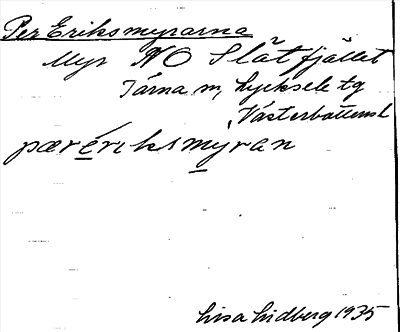 Per Eriksmyrarna
Myr NO Slåtfjället
Tärna sn, Lycksele tg
Västerbottens l
pæreriksmyran
Lisa Lidberg 1935